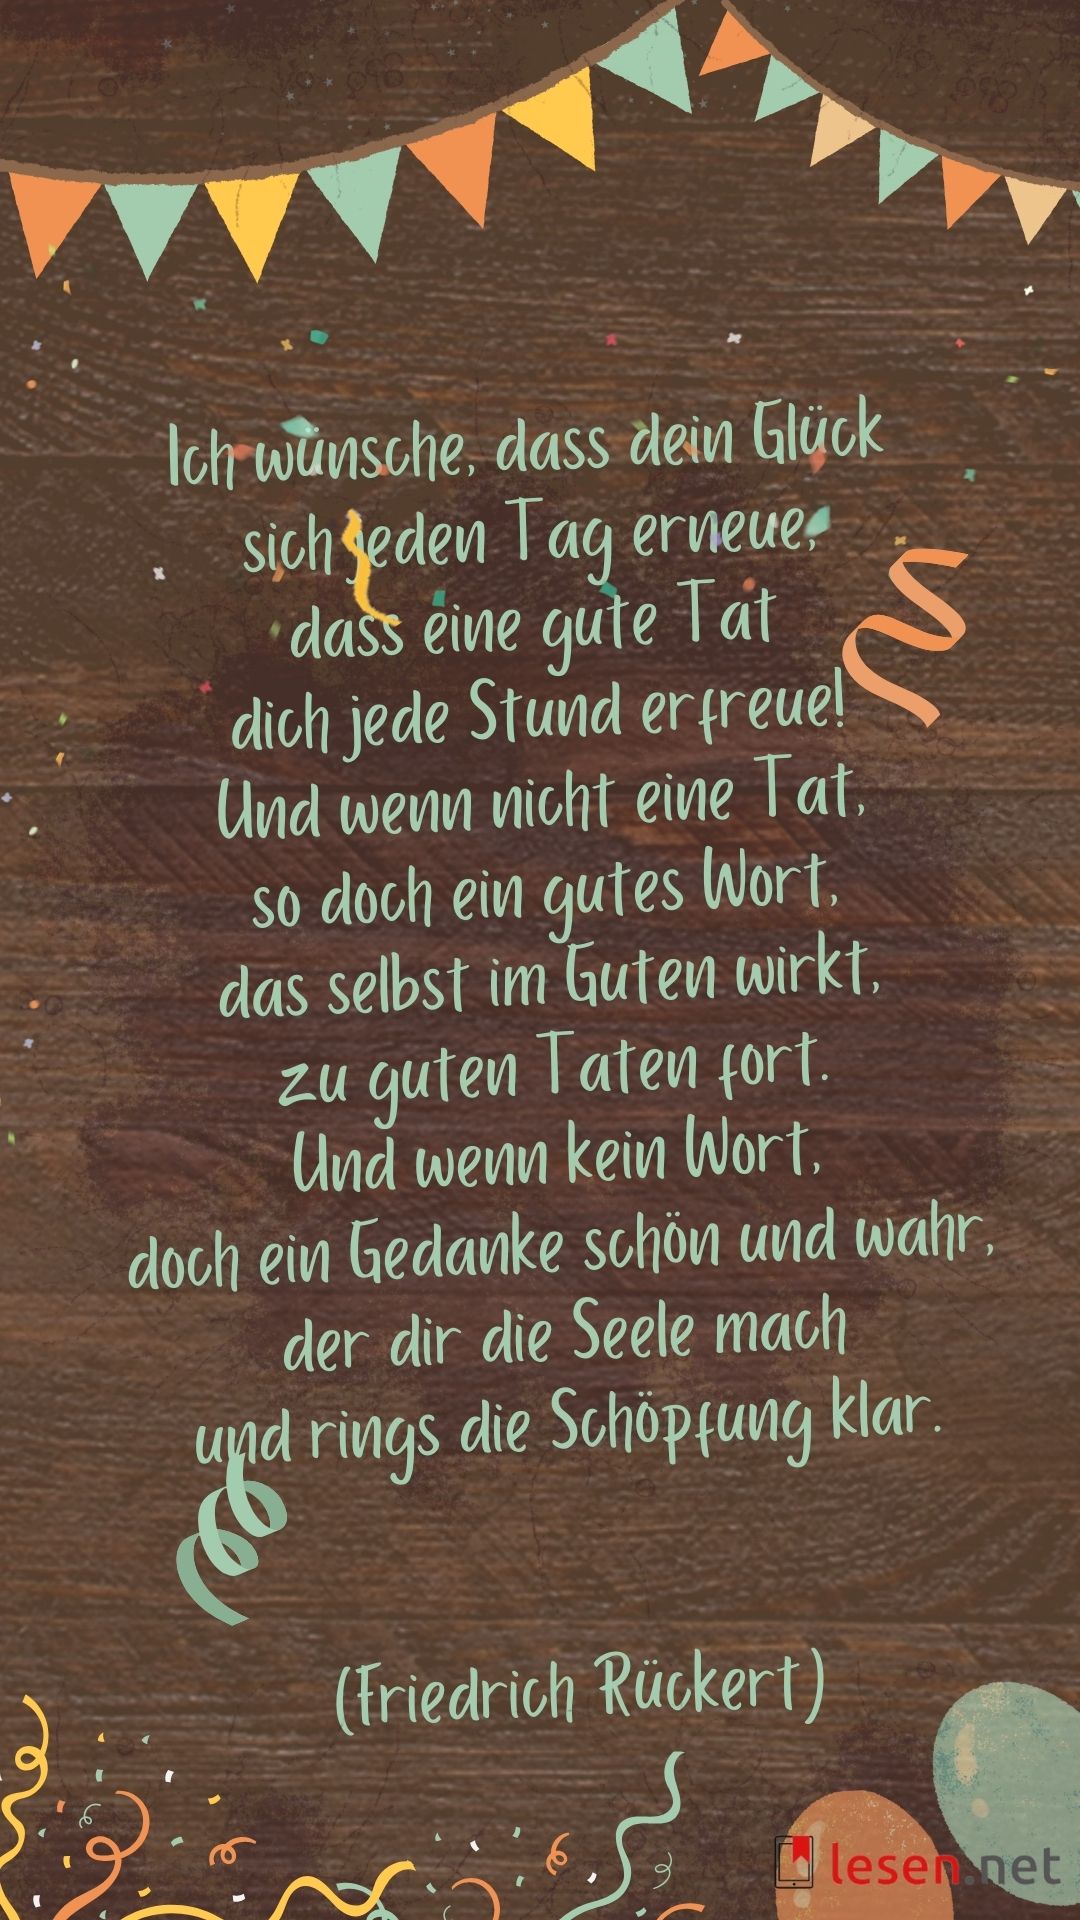 Ich wünsche, dass dein Glück
sich jeden Tag erneue,
dass eine gute Tat
dich jede Stund erfreue!
Und wenn nicht eine Tat,
so doch ein gutes Wort,
das selbst im Guten wirkt,
zu guten Taten fort.
Und wenn kein Wort,
doch ein Gedanke schön und wahr,
der dir die Seele mach
und rings die Schöpfung klar.
(Friedrich Rückert)
lesen.net